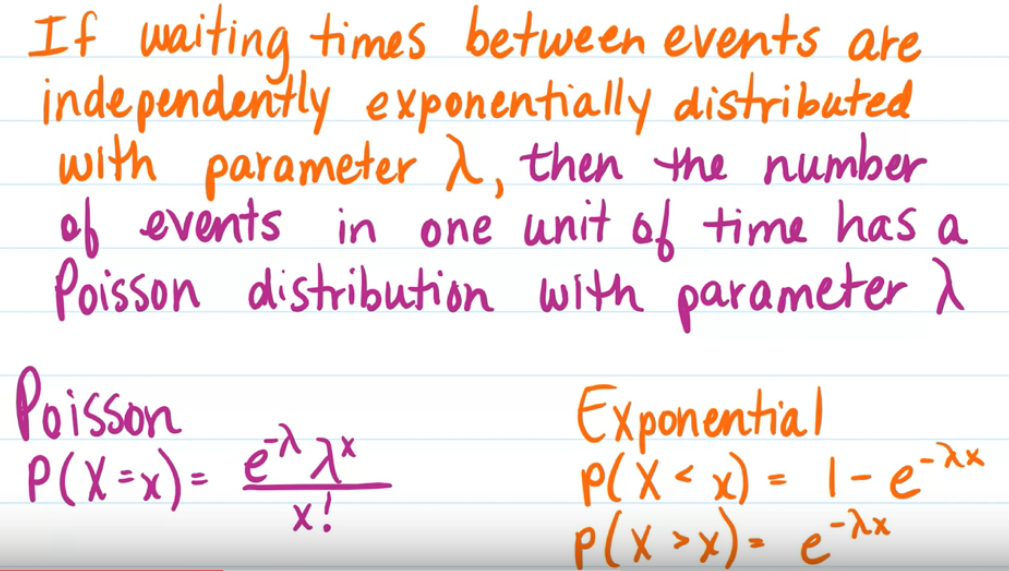 If waiting times between events are
independently exponentially distributed
with parameter λ, then the number
of events in one unit of time has a
Poisson distribution with parameter λ
Poisson
P(X=x)= e^-λ λ^x / x!
Exponential
P(X < x) = 1 - e^-λx
P(X > x) = e^-λx